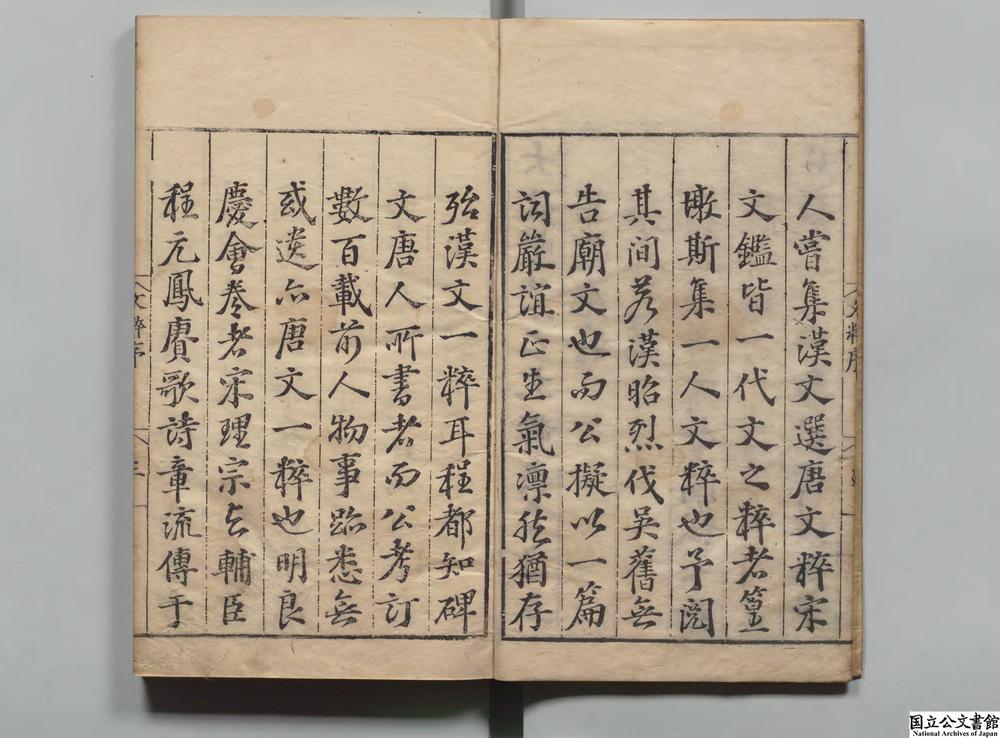 人嘗集漢文選唐文粹宋
文鑑皆一代文之粹者篁
墩斯集一人文粹也予閲
其間若漢昭烈伐吳舊無
告廟文也而公擬以一篇
詞嚴誼正生氣凛然猶存
殆漢文一粹耳程都知碑
文唐人所書者而公考訂
數百載前人物事跡悉無
或遺亦唐文一粹也明良
慶會卷者宋理宗与輔臣
程元鳳賡歌詩章流傳于
文粹序
文粹序
三
国立公文書館
National Archives of Japan